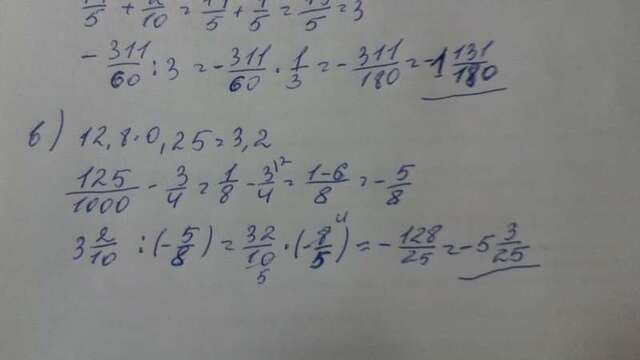 /5 + 2/10 = /5 + 1/5 = 15/5 = 3
- 311/60 : 3 = - 311/60 · 1/3 = - 311/180 = -1 131/180
в) 12,8 · 0,25 = 3,2
125/1000 - 3/4 = 1/8 - 3/4 |2 = 1-6/8 = - 5/8
3 2/10 : (- 5/8) = 32/10 5 · (- 8/5 4) = - 128/25 = -5 3/25